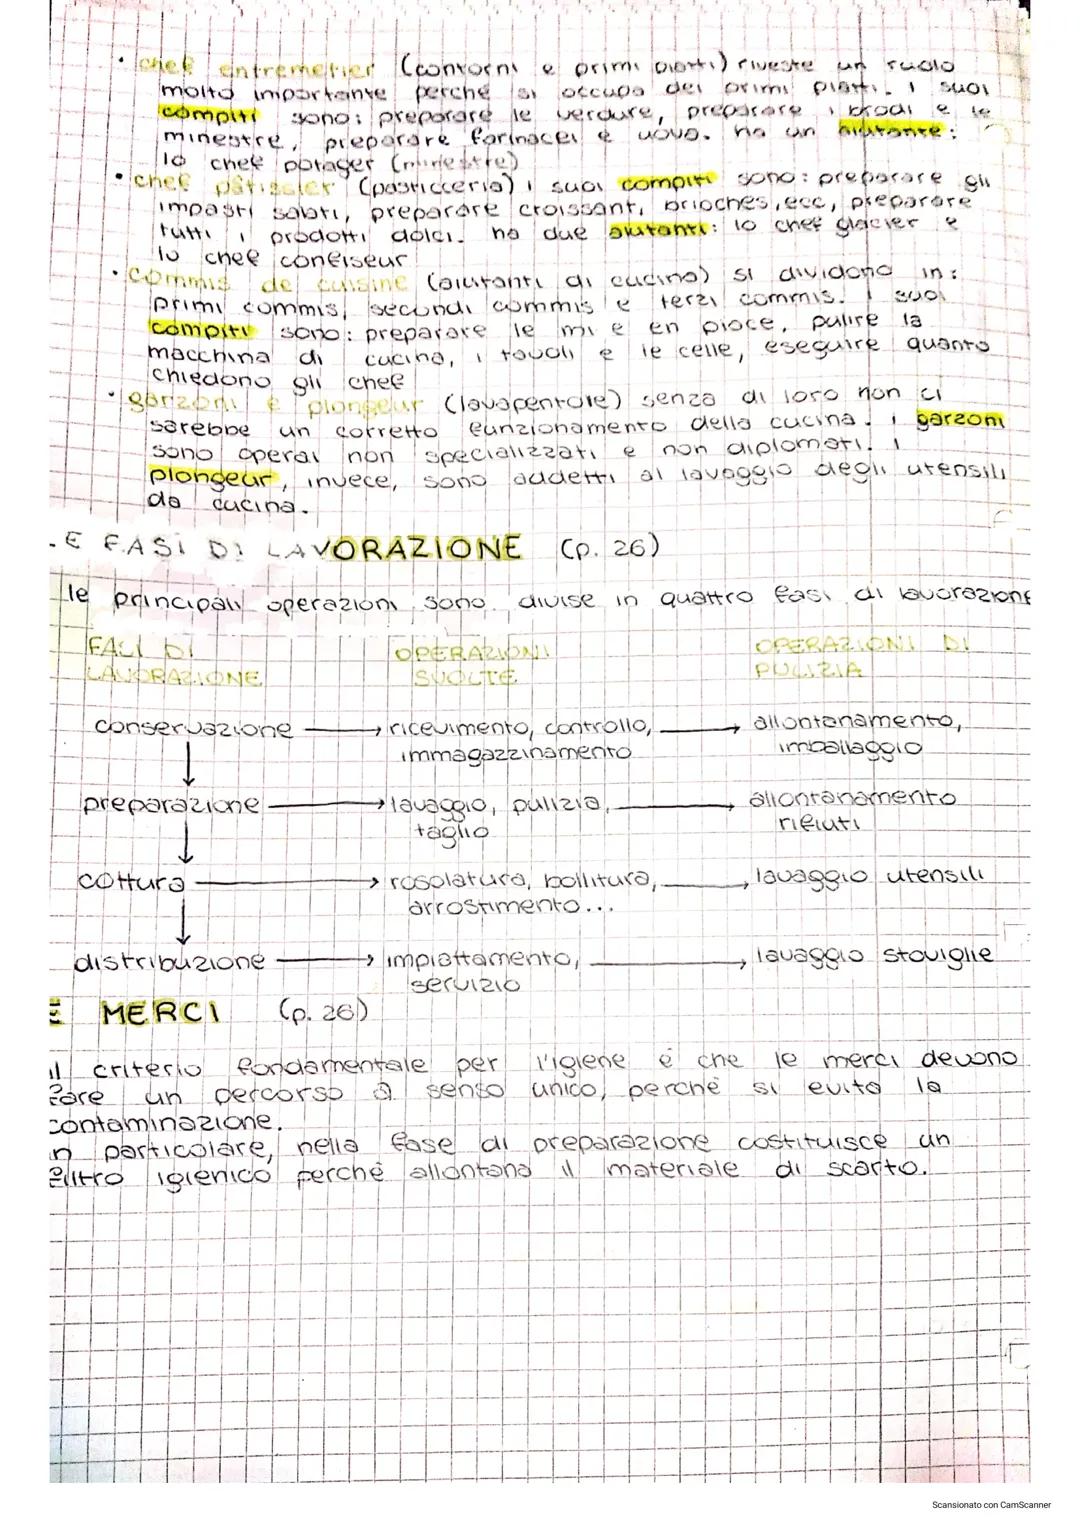 • chef entremetier (contorni e primi piatti) riveste un ruolo
molto importante perché si occupa dei primi piatti. I suoi
compiti sono: preparare le verdure, preparare i brodi e le
minestre, preparare farinacei e uova. ha un aiutante:
lo chef potager (minestre)
• chef pâtissier (pasticceria) i suoi compiti sono: preparare gli
impasti salati, preparare croissant, brioches, ecc, preparare
tutti i prodotti dolci. ha due aiutanti: lo chef glacier e
lo chef confiseur
• commis de cuisine (aiutanti di cucina) si dividono in:
primi commis, secondi commis e terzi commis. I suoi
compiti sono: preparare le mi e en place, pulire la
macchina di cucina, i tavoli e le celle, eseguire quanto
chiedono gli chef
• garzoni e plongeur (lavapentole) senza di loro non ci
sarebbe un corretto funzionamento della cucina. i garzoni
sono operai non specializzati e non diplomati. I
plongeur, invece, sono addetti al lavaggio degli utensili
da cucina.
E FASI DI LAVORAZIONE (p. 26)
le principali operazioni sono divise in quattro fasi di lavorazione
FASI DI OPERAZIONI OPERAZIONI DI
LAVORAZIONE SVOLTE PULIZIA
conservazione → ricevimento, controllo, → allontanamento,
immagazzinamento imballaggio
↓
preparazione → lavaggio, pulizia, → allontanamento
taglio rifiuti
↓
cottura → rosolatura, bollitura, → lavaggio utensili
arrostimento...
↓
distribuzione → impiattamento, → lavaggio stoviglie
servizio
E MERCI (p. 26)
il criterio fondamentale per l'igiene è che le merci devono
fare un percorso a senso unico, perché si evita la
contaminazione.
n particolare, nella fase di preparazione costituisce un
filtro igienico perché allontana il materiale di scarto.
Scansionato con CamScanner